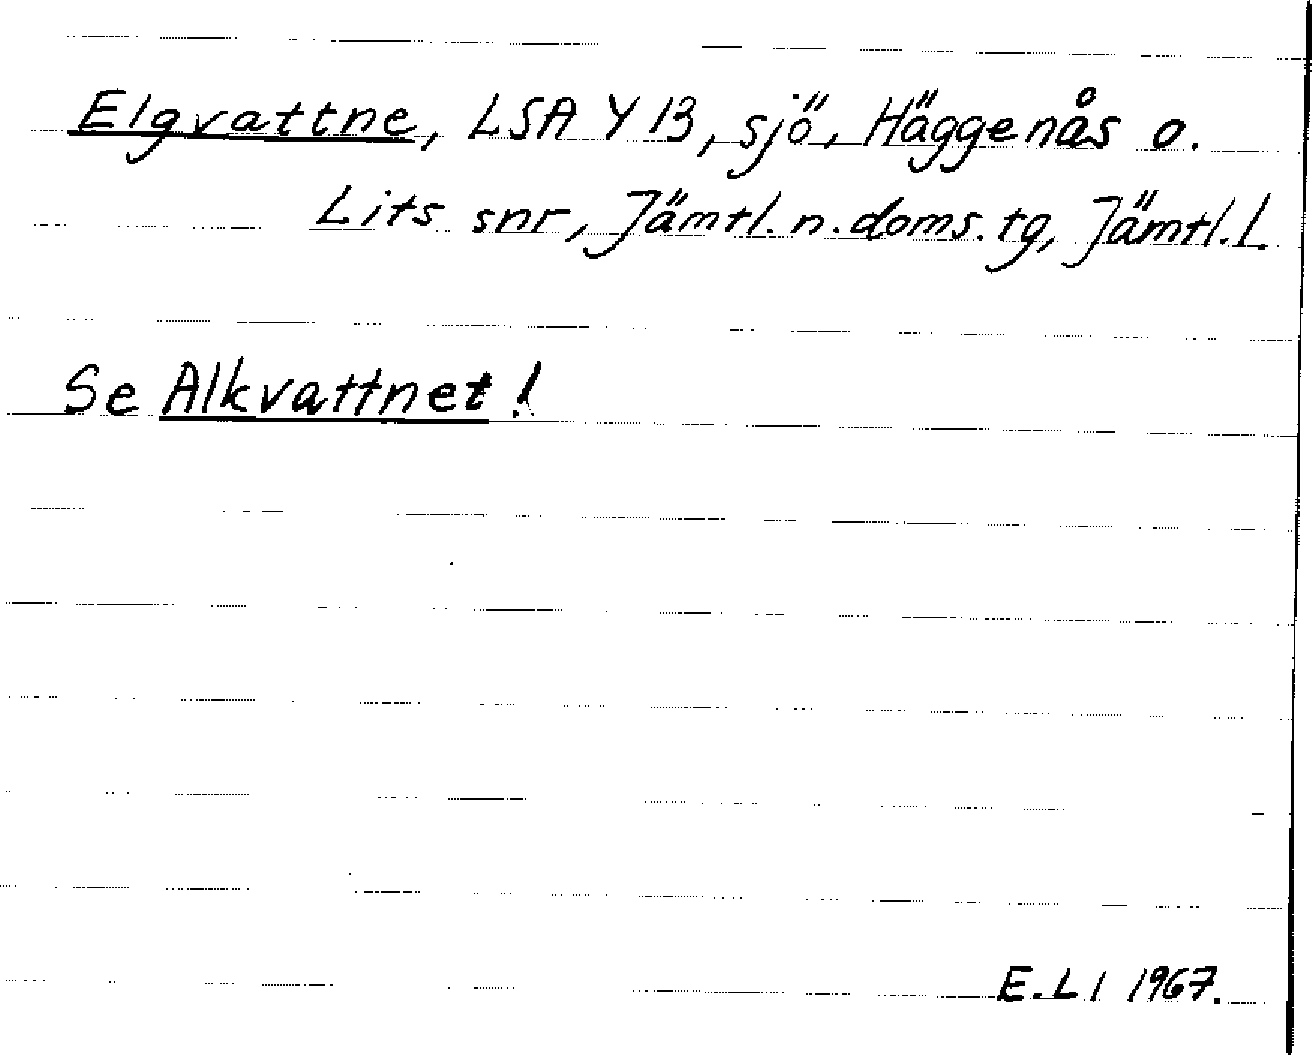 Elgvattne, LSA Y 13, sjö, Häggenås o.
Lits snr, Jämtl. n. doms. tg, Jämtl. l.
Se Alkvattnet!
E. L I 1967.